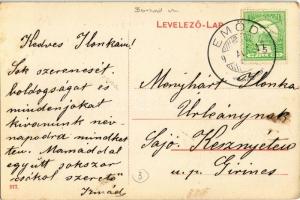 LEVELEZŐ-LAP
EMŐD
Kedves Ilonkám!
Sok szerencsét,
boldogságot és
mindenjókat
kivánunk név-
napodra mindket-
ten. Mamáddal
együtt sokszor
csókol szerető
Menyhárt Ilonka
Urleánynak
Sajó. Kesznyéten
u. p. Girincs